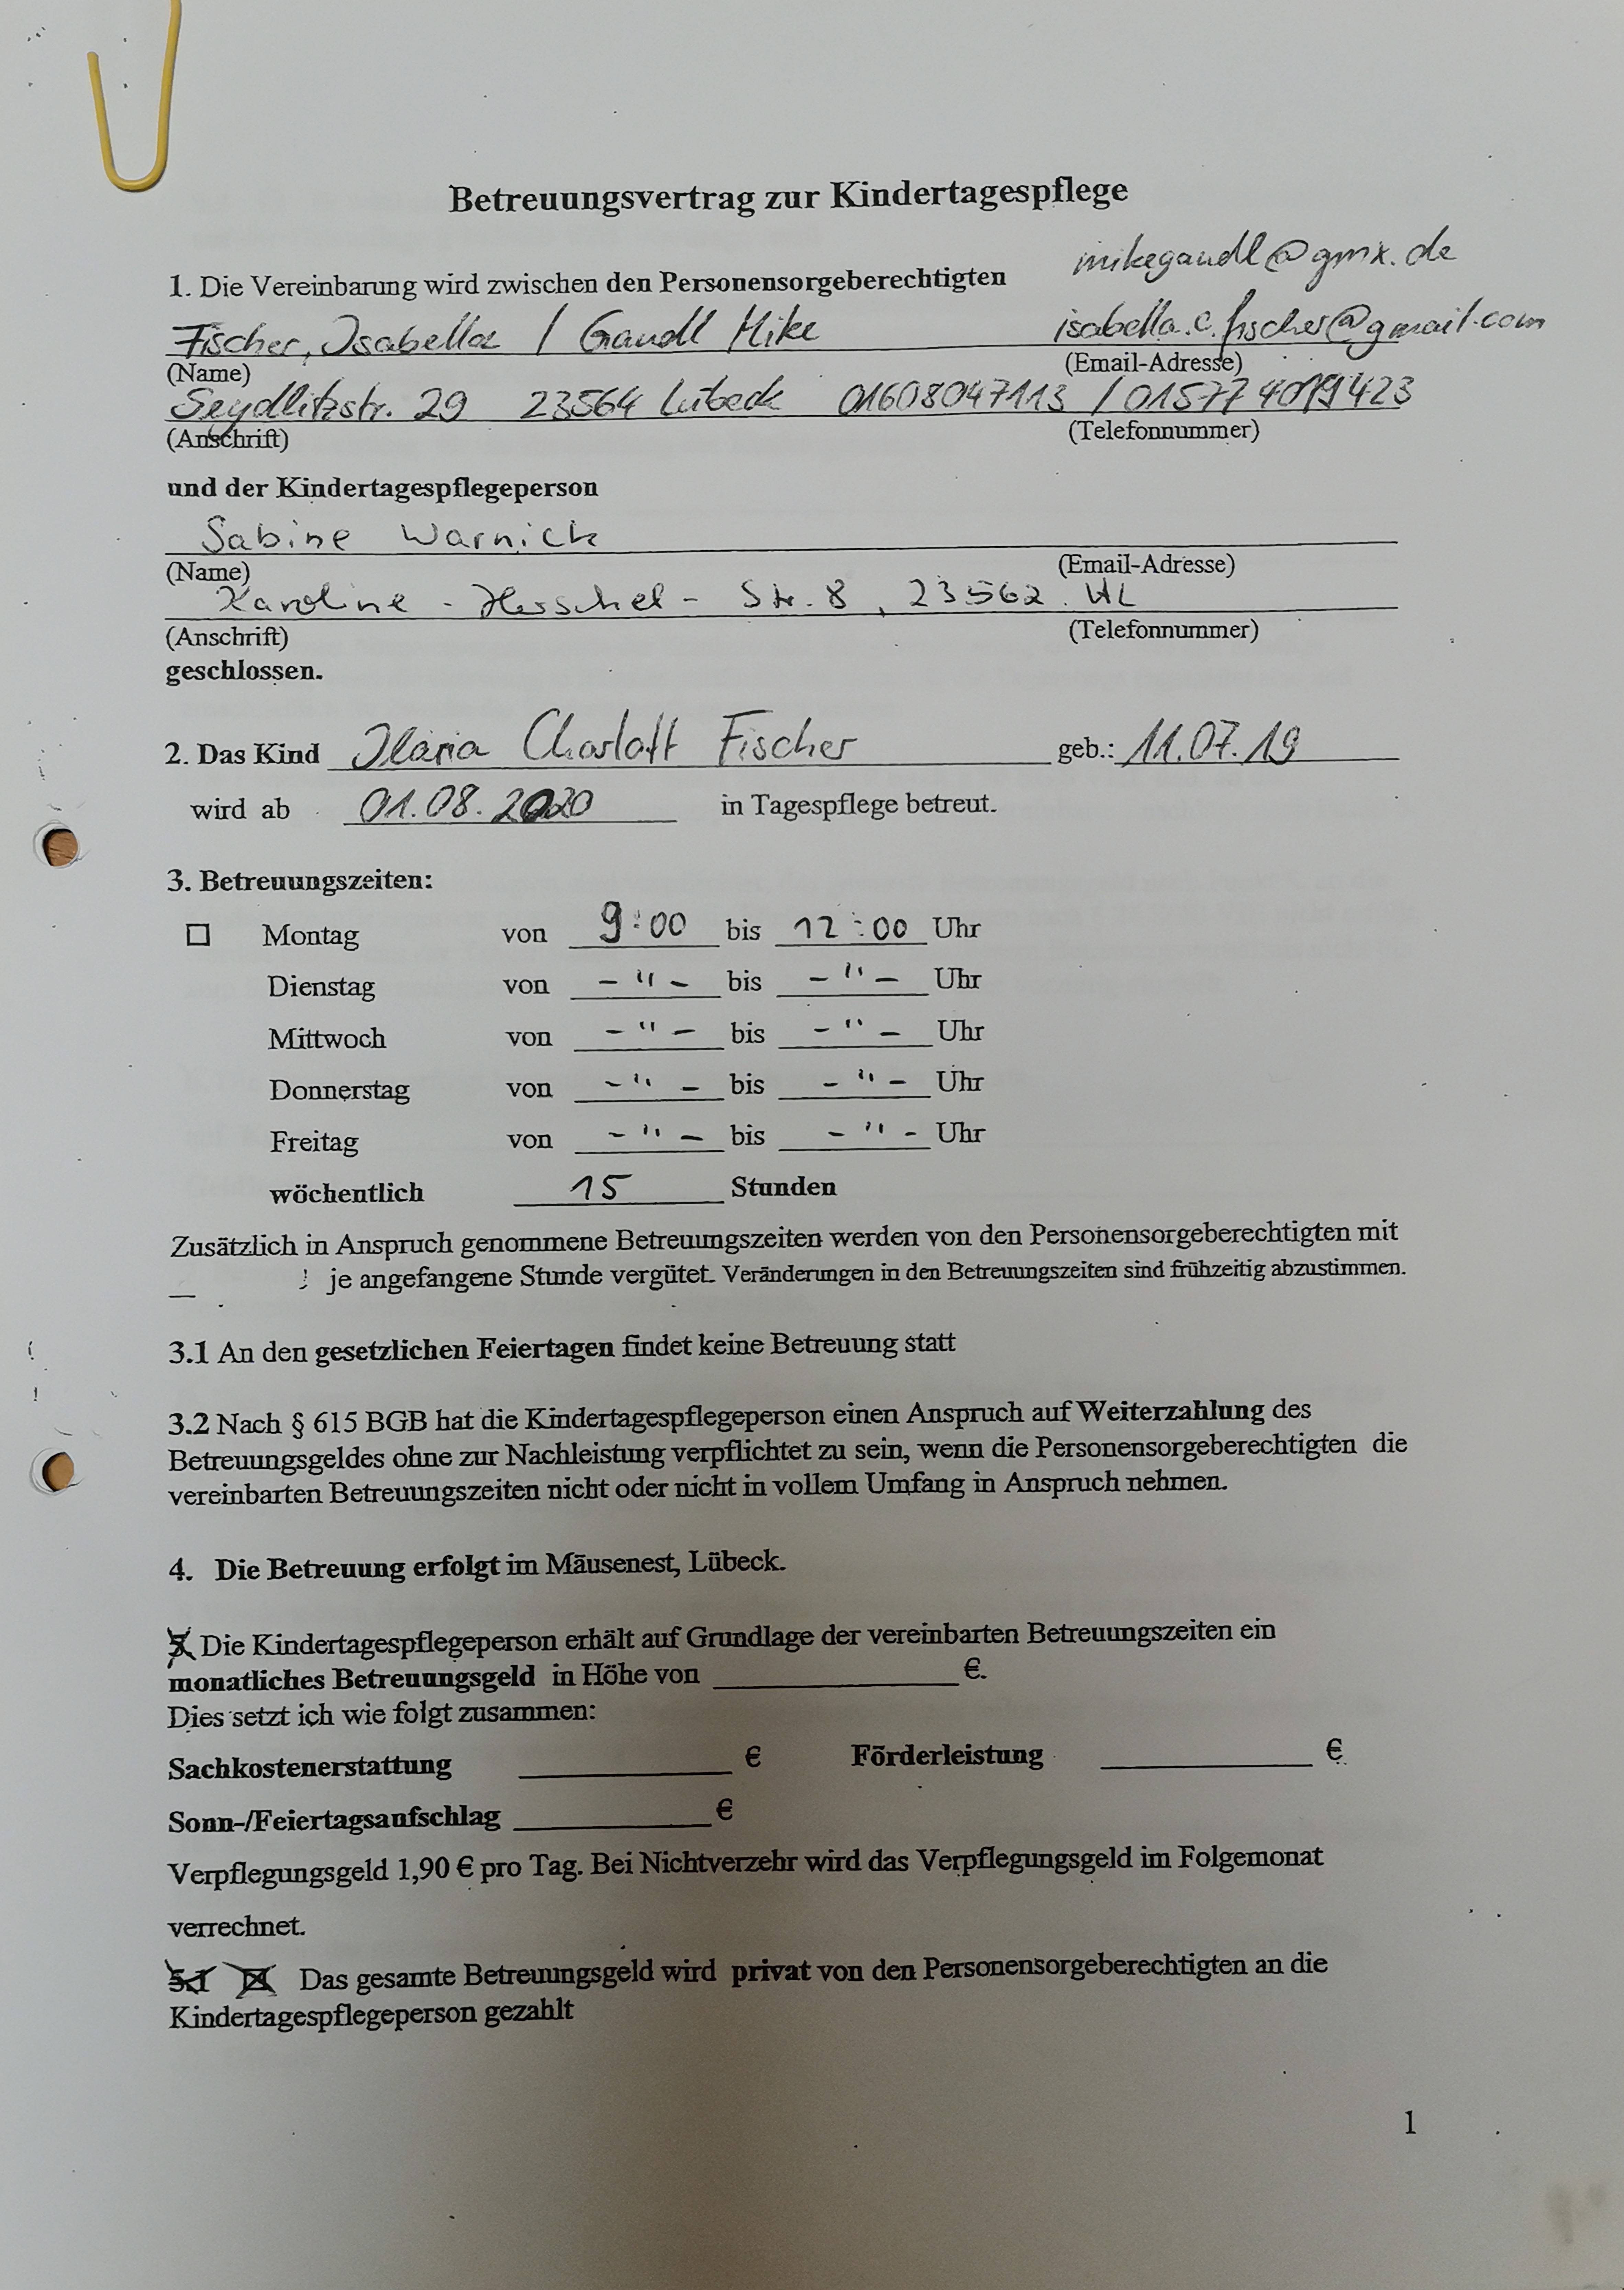 Betreuungsvertrag zur Kindertagespflege
mikegandl@gmx.de
1. Die Vereinbarung wird zwischen den Personensorgeberechtigten
Fischer, Isabella / Gandl Mike isabella.c.fischer@gmail.com
(Name) (Email-Adresse)
Seydlitzstr. 29 23564 Lübeck 01608047113 / 015774019423
(Anschrift) (Telefonnummer)
und der Kindertagespflegeperson
Sabine Warnick
(Name) (Email-Adresse)
Karoline - Herschel - Str. 8, 23562 HL
(Anschrift) (Telefonnummer)
geschlossen.
2. Das Kind Ilaria Charlott Fischer geb.: 11.07.19
wird ab 01.08.2020 in Tagespflege betreut.
3. Betreuungszeiten:
☐ Montag von 9:00 bis 12:00 Uhr
Dienstag von - " - bis - " - Uhr
Mittwoch von - " - bis - " - Uhr
Donnerstag von - " - bis - " - Uhr
Freitag von - " - bis - " - Uhr
wöchentlich 15 Stunden
Zusätzlich in Anspruch genommene Betreuungszeiten werden von den Personensorgeberechtigten mit
je angefangene Stunde vergütet. Veränderungen in den Betreuungszeiten sind frühzeitig abzustimmen.
3.1 An den gesetzlichen Feiertagen findet keine Betreuung statt
3.2 Nach § 615 BGB hat die Kindertagespflegeperson einen Anspruch auf Weiterzahlung des
Betreuungsgeldes ohne zur Nachleistung verpflichtet zu sein, wenn die Personensorgeberechtigten die
vereinbarten Betreuungszeiten nicht oder nicht in vollem Umfang in Anspruch nehmen.
4. Die Betreuung erfolgt im Mäusenest, Lübeck.
5. Die Kindertagespflegeperson erhält auf Grundlage der vereinbarten Betreuungszeiten ein
monatliches Betreuungsgeld in Höhe von €.
Dies setzt ich wie folgt zusammen:
Sachkostenerstattung € Förderleistung €
Sonn-/Feiertagsaufschlag €
Verpflegungsgeld 1,90 € pro Tag. Bei Nichtverzehr wird das Verpflegungsgeld im Folgemonat
verrechnet.
5.1 ☒ Das gesamte Betreuungsgeld wird privat von den Personensorgeberechtigten an die
Kindertagespflegeperson gezahlt
1